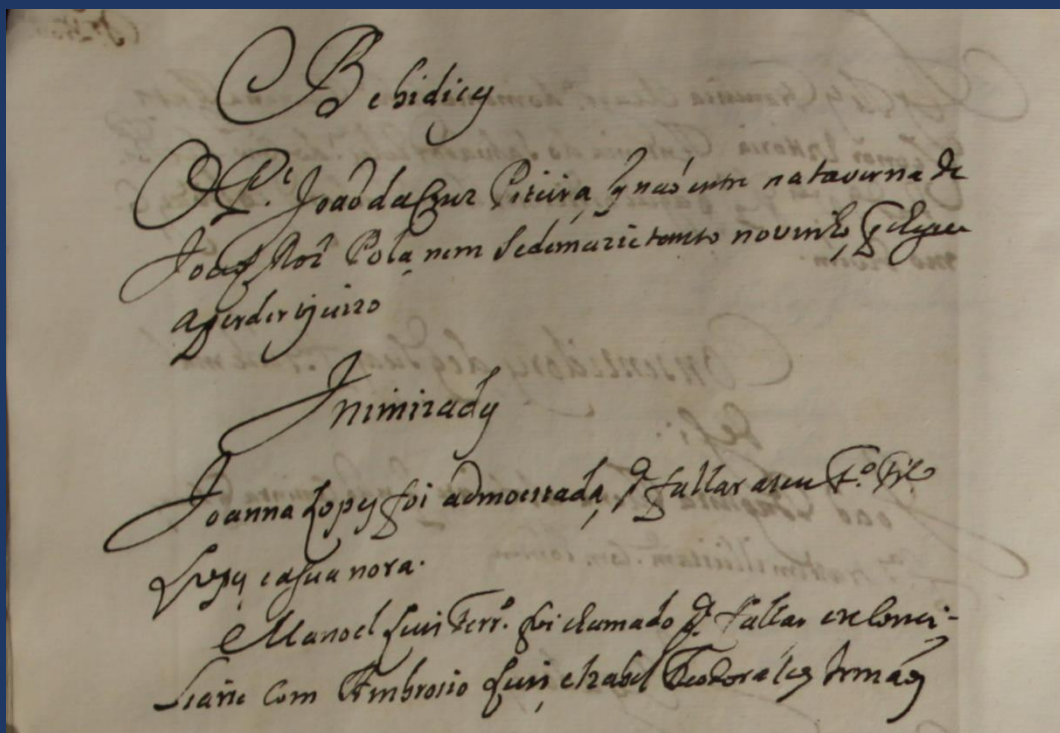 Bebidicy
O P.e João da Cruz Pireira, q não entre na taverna de
Joseph Roiz Pola, nem se demazie tanto no vinho, q chegue
a perder o juizo
Inimizady
Joanna Lopy foi admoestada, p.a fallar a seu F.o
Lopy e a sua nora.
Manoel Luis Ferr.o foi chamado p.a fallar e reconci-
liarse com Ambrosio Luis, e Izabel Teodora seus Irmãos